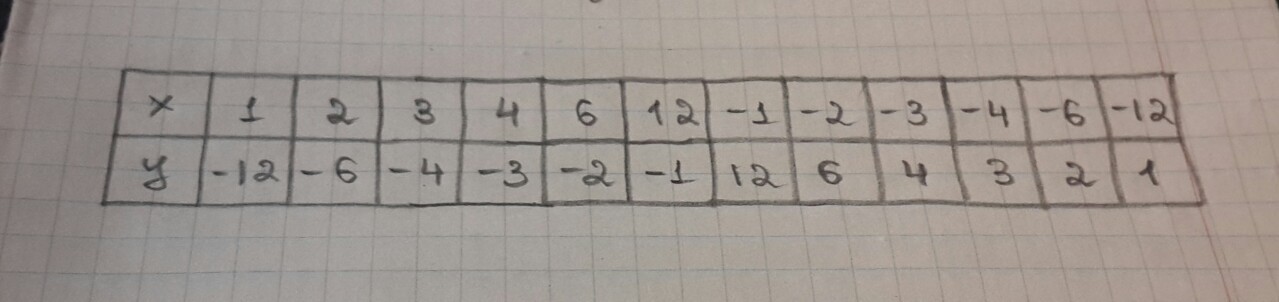 x 1 2 3 4 6 12 -1 -2 -3 -4 -6 -12
y -12 -6 -4 -3 -2 -1 12 6 4 3 2 1